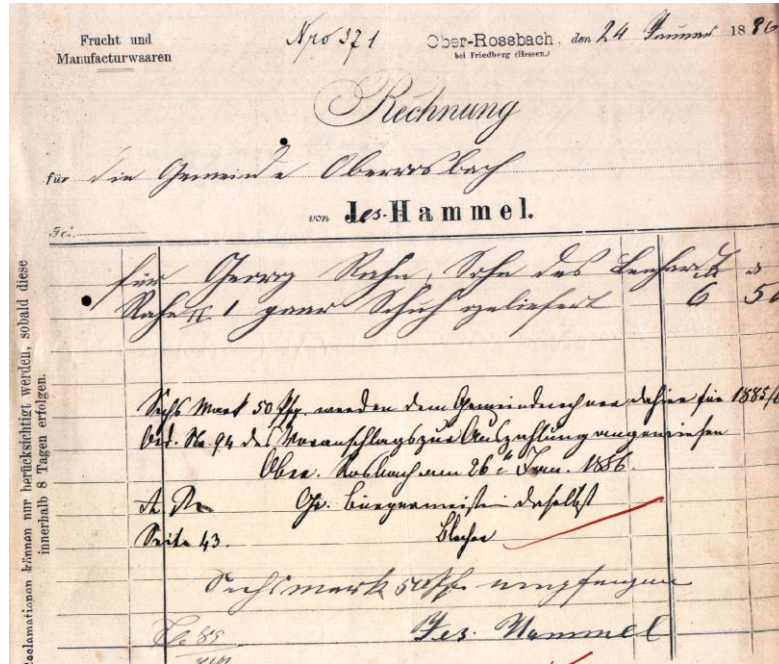 Frucht und
Manufacturwaaren
No 371
Ober-Rossbach, den 24 Januar 1886
bei Friedberg (Hessen.)
Rechnung
für die Gemeinde Oberrosbach
von Jes. Hammel.
Fol.
für Georg Rahn, Sohn des
Rahn II 1 paar Schuh geliefert 6 50
Sechs Mark 50 Pfg. werden dem Gemeinderechner dahier für 1885/6
Ord. No. 94 des Voranschlags zur Auszahlung angewiesen
Ober-Rosbach am 26. Jan. 1886.
Gr. Bürgermeisterei daselbst
Seite 43. Blecher
Sechs mark 50 Pf. empfangen
Jes. Hammel
Reclamationen können nur berücksichtigt werden, sobald diese
innerhalb 8 Tagen erfolgen.